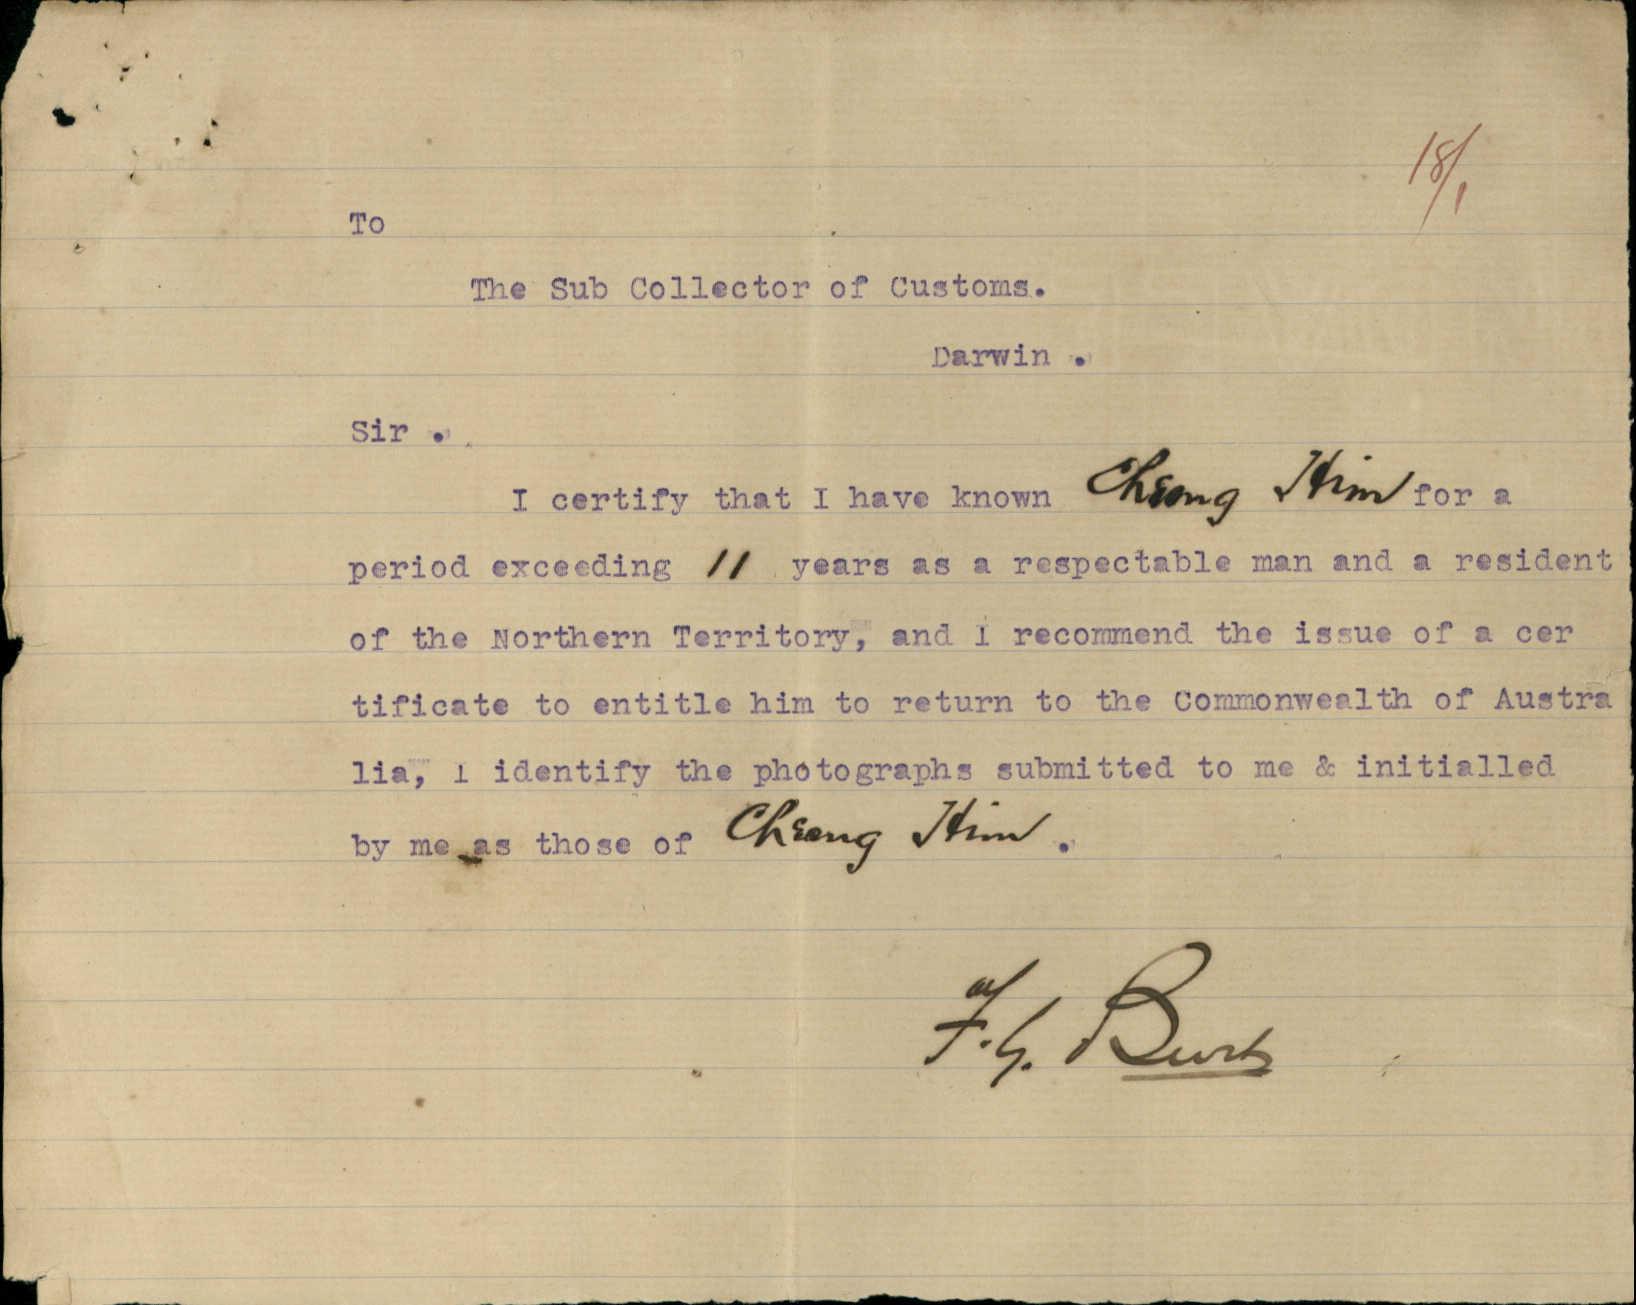 18/1
To
The Sub Collector of Customs.
Darwin .
Sir .
I certify that I have known Cheong Him for a
period exceeding 11 years as a respectable man and a resident
of the Northern Territory, and I recommend the issue of a cer
tificate to entitle him to return to the Commonwealth of Austra
lia, I identify the photographs submitted to me & initialled
by me as those of Cheong Him .
F. G. Burt